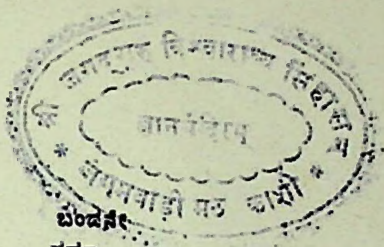 श्री जगद्गुरु विश्वाराध्य सिंहासन
ज्ञानमंदिरम्
* जंगमवाड़ी मठ काशी *
ಬಂಡನೇ